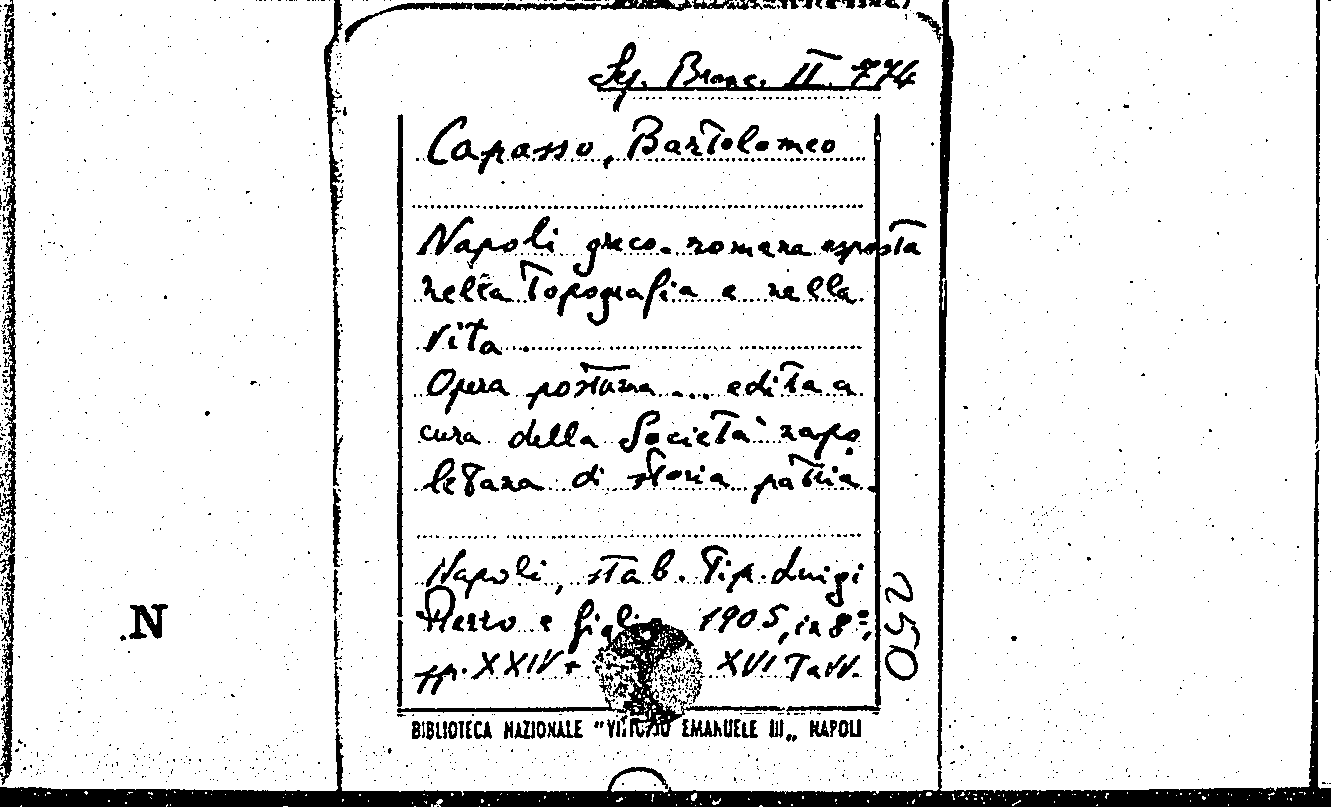 Sez. Branc. II. 774
Capasso, Bartolomeo
Napoli greco-romana esposta
nella Topografia e nella
vita
Opera postuma ... edita a
cura della Società napo
letana di storia patria.
Napoli, stab. Tip. Luigi
Pierro e figlio 1905, in 8º,
pp. XXIV + XVI Tavv.
250
BIBLIOTECA NAZIONALE "VITTORIO EMANUELE III„ NAPOLI
N